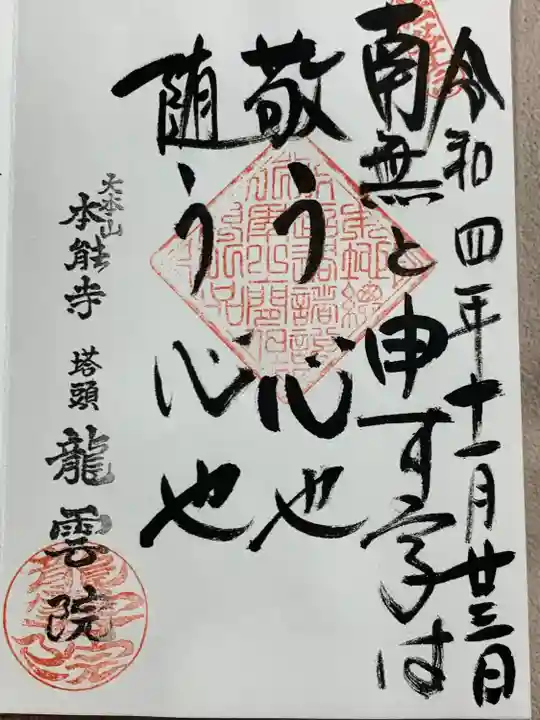 令和四年十一月廿三日
南無と申す字は
敬う心也
随う心也
大本山
本能寺 塔頭 龍雲院